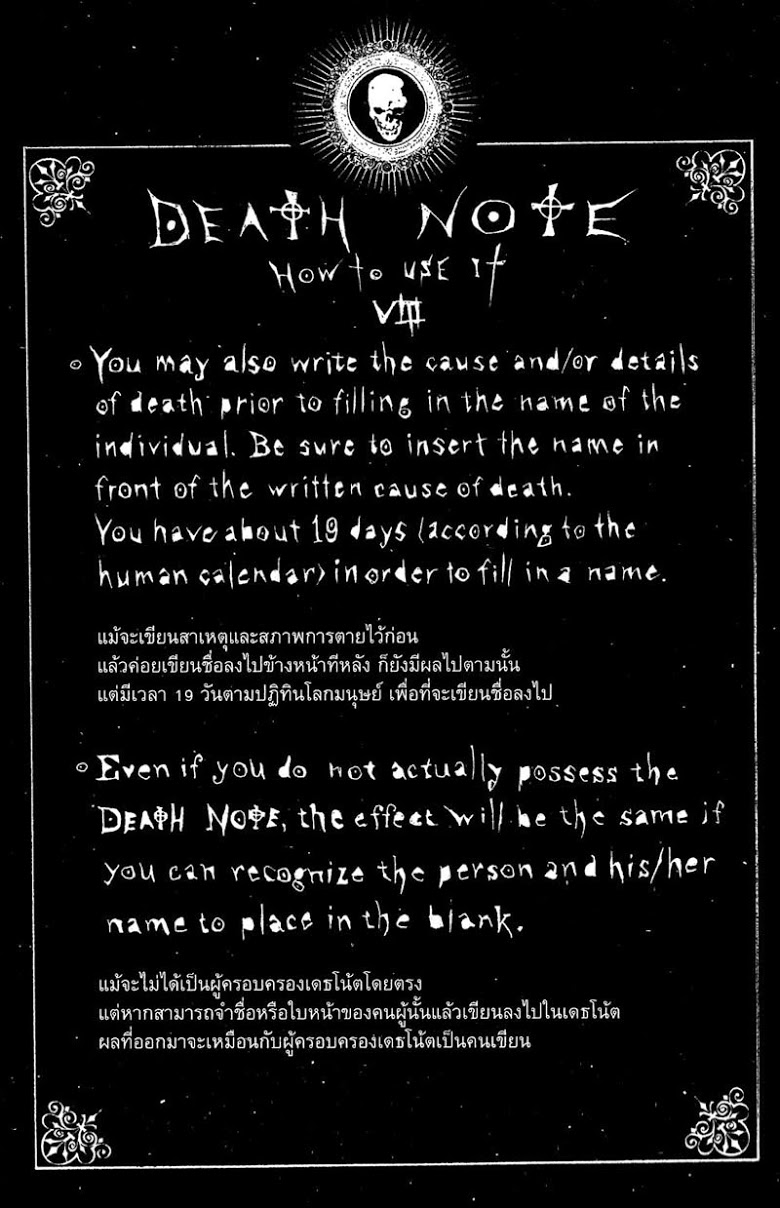 DEATH NOTE
How to use it
VIII
You may also write the cause and/or details
of death prior to filling in the name of the
individual. Be sure to insert the name in
front of the written cause of death.
You have about 19 days (according to the
human calendar) in order to fill in a name.
แม้จะเขียนสาเหตุและสภาพการตายไว้ก่อน
แล้วค่อยเขียนชื่อลงไปข้างหน้าทีหลัง ก็ยังมีผลไปตามนั้น
แต่มีเวลา 19 วันตามปฏิทินโลกมนุษย์ เพื่อที่จะเขียนชื่อลงไป
Even if you do not actually possess the
DEATH NOTE, the effect will be the same if
you can recognize the person and his/her
name to place in the blank.
แม้จะไม่ได้เป็นผู้ครอบครองเดธโน้ตโดยตรง
แต่หากสามารถจำชื่อหรือใบหน้าของคนผู้นั้นแล้วเขียนลงไปในเดธโน้ต
ผลที่ออกมาจะเหมือนกับผู้ครอบครองเดธโน้ตเป็นคนเขียน